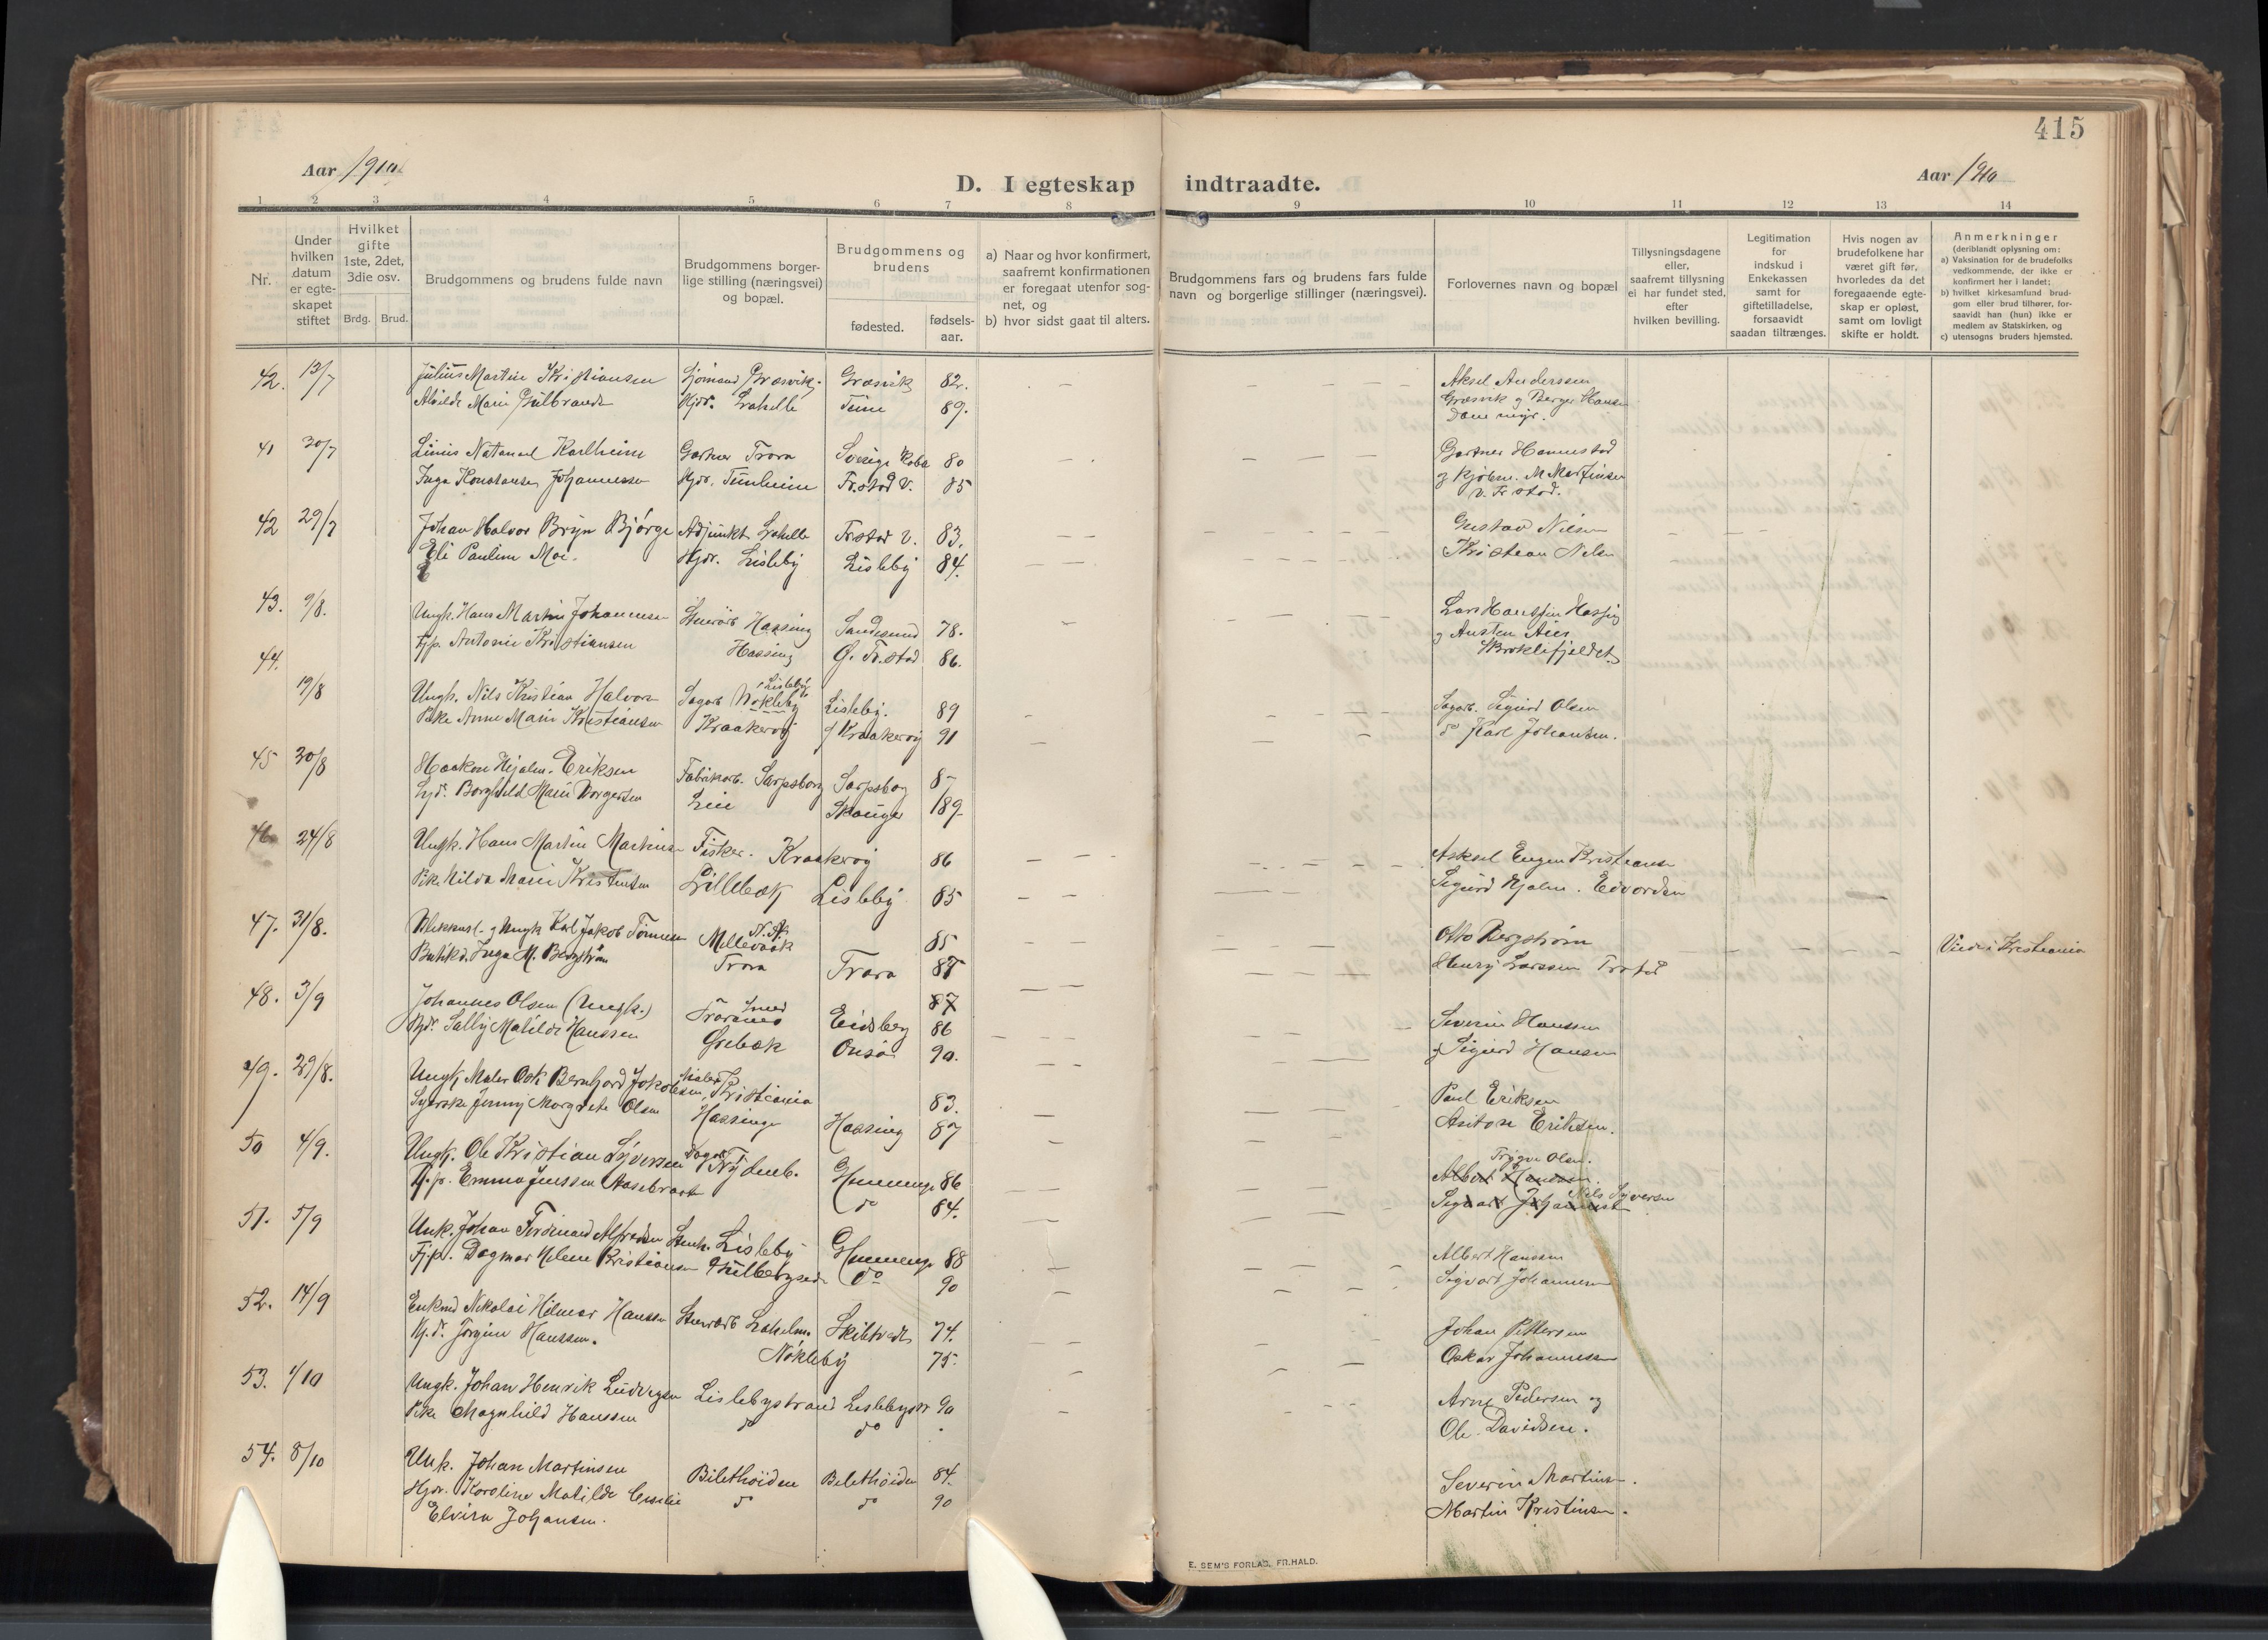 415
Aar 1910
D. I egteskap indtraadte.
Aar 1910
1 2 3 4 5 6 7 8 9 10 11 12 13 14
Nr.
Under hvilken datum er egteskapet stiftet
Hvilket gifte 1ste, 2det, 3die osv.
Brdg. Brud.
Brudgommens og brudens fulde navn
Brudgommens borgerlige stilling (næringsvei) og bopæl.
Brudgommens og brudens
fødested.
fødselsaar.
a) Naar og hvor konfirmert, saafremt konfirmationen er foregaat utenfor sognet, og
b) hvor sidst gaat til alters.
Brudgommens fars og brudens fars fulde navn og borgerlige stillinger (næringsvei).
Forlovernes navn og bopæl
Tillysningsdagene eller, saafremt tillysning ei har fundet sted, efter hvilken bevilling.
Legitimation for indskud i Enkekassen samt for giftetilladelse, forsaavidt saadan tiltrænges.
Hvis nogen av brudefolkene har været gift før, hvorledes da det foregaaende egteskap er opløst, samt om lovligt skifte er holdt.
Anmerkninger
(deriblandt oplysning om:
a) Vaksination for de brudefolks vedkommende, der ikke er konfirmert her i landet;
b) hvilket kirkesamfund brudgom eller brud tilhører, forsaavidt han (hun) ikke er medlem av Statskirken, og
c) utensogns bruders hjemsted.
42. 13/7 Julius Martin Kristiansen Sjømand Græsvik. Græsvik 82. Aksel Anderssen
Alvilde Marie Gulbrands Hjdr. Lahelle 89. Græsvik og Berger Hansen
41 30/7 Linus Natanael Karlheim Gartner Trara Sverige 80 Gartner Hannestad
Inga Konstanse Johannessen Hjdr. Tunheim Fr.stad V. 85 og Kjøbm. M Martinsen
V. Fr stad.
42 29/7 Johan Halvor Bryn Bjørge Adjunkt Lahelle Fr.stad V. 83. Gustav Nilsen
Eli Pauline Moe. Hjdr. Lisleby Lisleby 84. Kristian Nilsen
43. 9/8. Ungk. Hans Martin Johannessen Hassing Sandesund 78.
Antonie Kristiansen Hassing G. Fr.stad 86.
44. 19/8 Ungk. Nils Kristian Halvorsen Sagarb Nøkleby i Lisleby Lisleby. 89 Sagarb. Sigurd Olsen
Pike Anne Marie Kristiansen Kraakerøy Kraakerøy 91 do Karl Johansen.
45 30/8 Haakon Hjalm. Eriksen Fabrikarb. Sarpsborg Sarpsborg 8-
Borghild Marie Borgersen Lie 189-
46 24/8 Ungk. Hans Martin Martinsen Fisker. Kraakerøy 86 Asksel Eugen Kristiansen
Pike Hilda Marie Kristensen Lillebæk Lisleby 85 Sigurd Hjalm. Edvardsen
47. 31/8. Ungk Karl Jakob Tønnesen Mellevaak 85 Otto Bergstrøm
Inga M. Bergstrøm Trara Trara 87 Henry Larssen Viede i Kristiania
48. 3/9 Johannes Olsen (Ungk.) Smed Traranes Eidsberg 87 86 Severin Hanssen
Sally Matilde Hanssen Ørebæk Onsø 90. og Sigurd Hansen
49. 29/8. Ungk Maler Ask Bernhard Jakobsen Maler, Kristiania 83. Paul Eriksen
Syerske Jenny Margrete Olsen Hassing Hassing 87 Anton Eriksen.
50 4/9. Ungk. Ole Kristian Syversen Glemminge 86 Trygve Olsen. Albert Hanssen.
Emma Jenssen Aasebraat do 84. Sigvart Johanness Nils Syversen
51. 5/9 Unk. Johan Ferdinand Alfredsen Lisleby Glemminge 88 Albert Hanssen
Fj.p. Dagmar Helene Kristiansen do 90 Sigvart Johannesen
52. 14/9 Enkmd Nikolai Hilmar Hanssen Skibtvedt 74. Johan Pettersen
Jørgine Hanssen. Nøkleby 75. Oskar Johannessen
53. 1/10 Ungk. Johan Henrik Ludvigsen Lislebystrand Lislebystr 90 Arne Pedersen og
Pike Magnhild Hanssen do do Ole Davidsen.
54. 8/10 Unk. Johan Martinsen Bilethøiden Bilethøiden 84. Severin Martinsen.
Hjdr. Karoline Matilde Cecilie do do 90 Martin Kristinsen.
Elvira Johansen.
E. SEM'S FORLAG, FR.HALD.